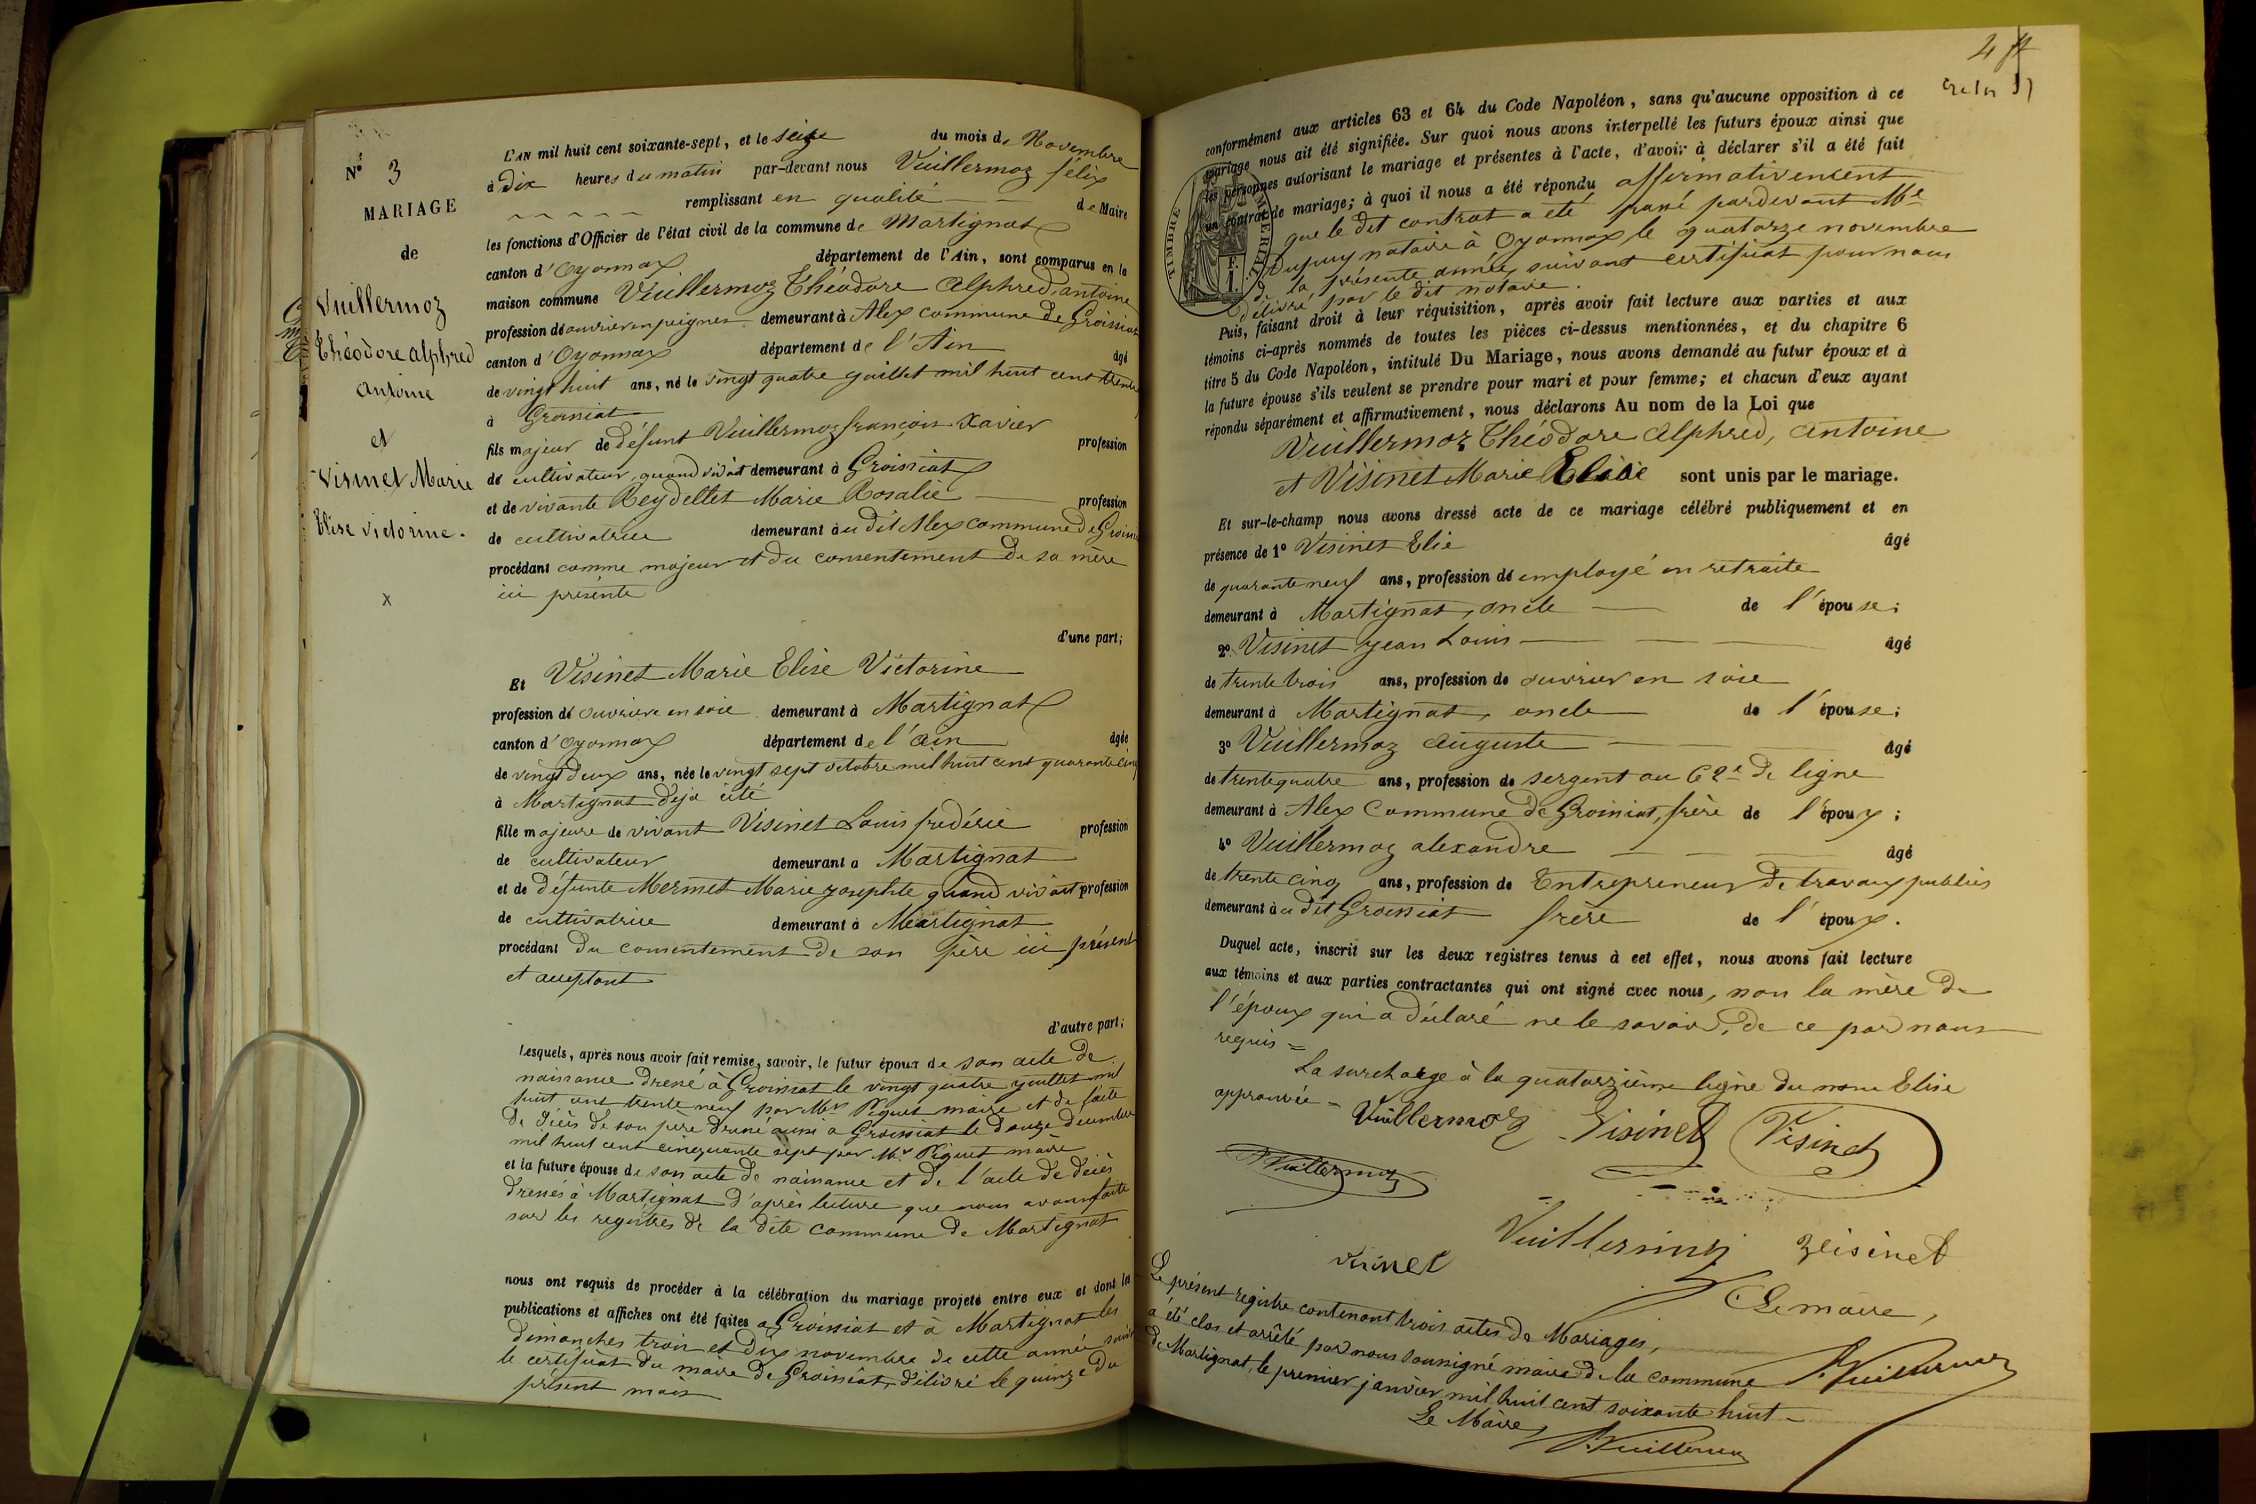 N° 3
MARIAGE
de
Vuillermoz
Théodore alphred
antoine
et
Visinet Marie
Elise victorine.
x
L'AN mil huit cent soixante-sept, et le seize du mois de Novembre
à dix heures du matin par-devant nous Vuillermoz félix
remplissant en qualité de Maire
les fonctions d'Officier de l'état civil de la commune de Martignat
canton d'Oyonnax département de l'Ain, sont comparus en la
maison commune Vuillermoz Théodore Alphred, antoine
profession de ouvrier en peignes demeurant à Alex commune de Groissiat
canton d'Oyonnax département de l'Ain âgé
de vingt huit ans, né le vingt quatre juillet mil huit cent trente
à Groissiat
fils majeur de défunt Vuillermoz françois Xavier profession
de cultivateur, quand vivait demeurant à Groissiat
et de vivante Reydellet Marie Rosalie profession
de cultivatrice demeurant au dit Alex commune de Groissiat
procédant comme majeur et du consentement de sa mère
ici présente
d'une part;
Et Visinet Marie Elise Victorine
profession de ouvrière en soie demeurant à Martignat
canton d'Oyonnax département de l'ain âgée
de vingt deux ans, née le vingt sept octobre mil huit cent quarante cinq
à Martignat déjà cité
fille majeure de vivant Visinet Louis frédéric profession
de cultivateur demeurant à Martignat
et de défunte Mermet Marie josephte quand vivait profession
de cultivatrice demeurant à Martignat
procédant du consentement de son père ici présent
et acceptant
d'autre part;
Lesquels, après nous avoir fait remise, savoir, le futur époux de son acte de
naissance dressé à Groissiat le vingt quatre juillet mil
huit cent trente neuf par Mr Piquet maire et de l'acte
de décès de son père dressé aussi à Groissiat le douze décembre
mil huit cent cinquante sept par Mr Piquet maire
et la future épouse de son acte de naissance et de l'acte de décès
dressés à Martignat d'après lecture que nous avons faite
sur les registres de la dite commune de Martignat
nous ont requis de procéder à la célébration du mariage projeté entre eux et dont les
publications et affiches ont été faites à Groissiat et à Martignat les
dimanches trois et dix novembre de cette année suivt
le certificat du maire de Groissiat, délivré le quinze du
présent mois
conformément aux articles 63 et 64 du Code Napoléon, sans qu'aucune opposition à ce
mariage nous ait été signifiée. Sur quoi nous avons interpellé les futurs époux ainsi que
les personnes autorisant le mariage et présentes à l'acte, d'avoir à déclarer s'il a été fait
un contrat de mariage; à quoi il nous a été répondu affirmativement
que le dit contrat a été passé pardevant Me
Dupuy notaire à Oyonnax le quatorze novembre
de la présente année, suivant certificat pour nous
délivré par le dit notaire.
TIMBRE IMPÉRIAL
Puis, faisant droit à leur réquisition, après avoir fait lecture aux parties et aux
témoins ci-après nommés de toutes les pièces ci-dessus mentionnées, et du chapitre 6
titre 5 du Code Napoléon, intitulé Du Mariage, nous avons demandé au futur époux et à
la future épouse s'ils veulent se prendre pour mari et pour femme; et chacun d'eux ayant
répondu séparément et affirmativement, nous déclarons Au nom de la Loi que
Vuillermoz Théodore Alphred, Antoine
et Visinet Marie Elise sont unis par le mariage.
Et sur-le-champ nous avons dressé acte de ce mariage célébré publiquement et en
présence de 1° Visinet Elie âgé
de quarante neuf ans, profession de employé en retraite
demeurant à Martignat, oncle de l'épouse;
2° Visinet jean Louis âgé
de trente trois ans, profession de ouvrier en soie
demeurant à Martignat, oncle de l'épouse;
3° Vuillermoz auguste âgé
de trente quatre ans, profession de sergent au 62e de ligne
demeurant à Alex Commune de Groissiat, frère de l'époux;
4° Vuillermoz alexandre âgé
de trente cinq ans, profession de Entrepreneur de travaux publics
demeurant au dit Groissiat frère de l'époux.
Duquel acte, inscrit sur les deux registres tenus à cet effet, nous avons fait lecture
aux témoins et aux parties contractantes qui ont signé avec nous, non la mère de
l'époux qui a déclaré ne le savoir, de ce par nous
requis =
La surcharge à la quatorzième ligne du nom Elise
approuvée =
Vuillermoz Visinet Visinet
Vuillermoz
Vuillermoz Visinet
visinet
Le maire,
Vuillermoz
Le présent registre contenant trois actes de Mariages,
a été clos et arrêté par nous soussigné maire de la commune
de Martignat, le premier janvier mil huit cent soixante huit
Le Maire,
Vuillermoz